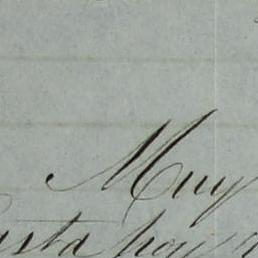 Muy
hasta hoy